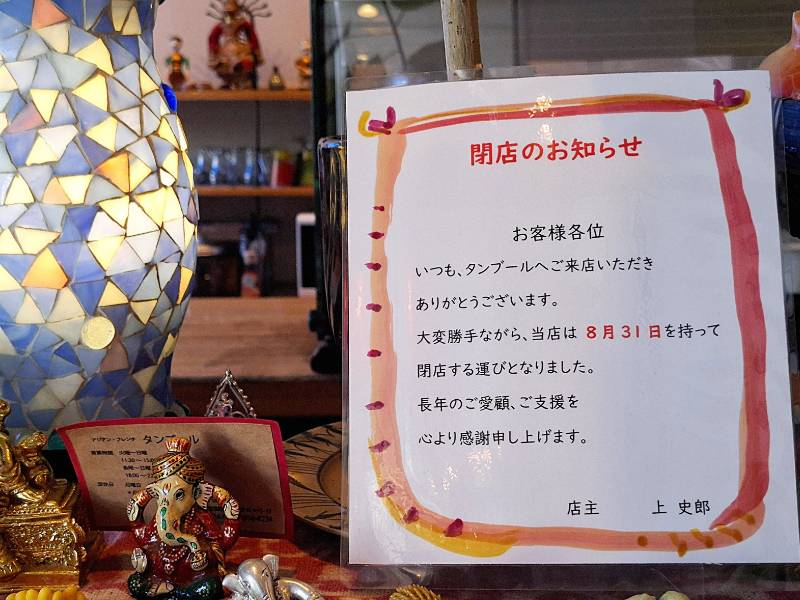 閉店のお知らせ
お客様各位
いつも、タンブールへご来店いただき
ありがとうございます。
大変勝手ながら、当店は 8月31日を持って
閉店する運びとなりました。
長年のご愛顧、ご支援を
心より感謝申し上げます。
店主 上 史郎
アジアン・フレンチ タンブール
営業時間 火曜~日曜
11:30~15:
18:00~22
定休日 月曜日